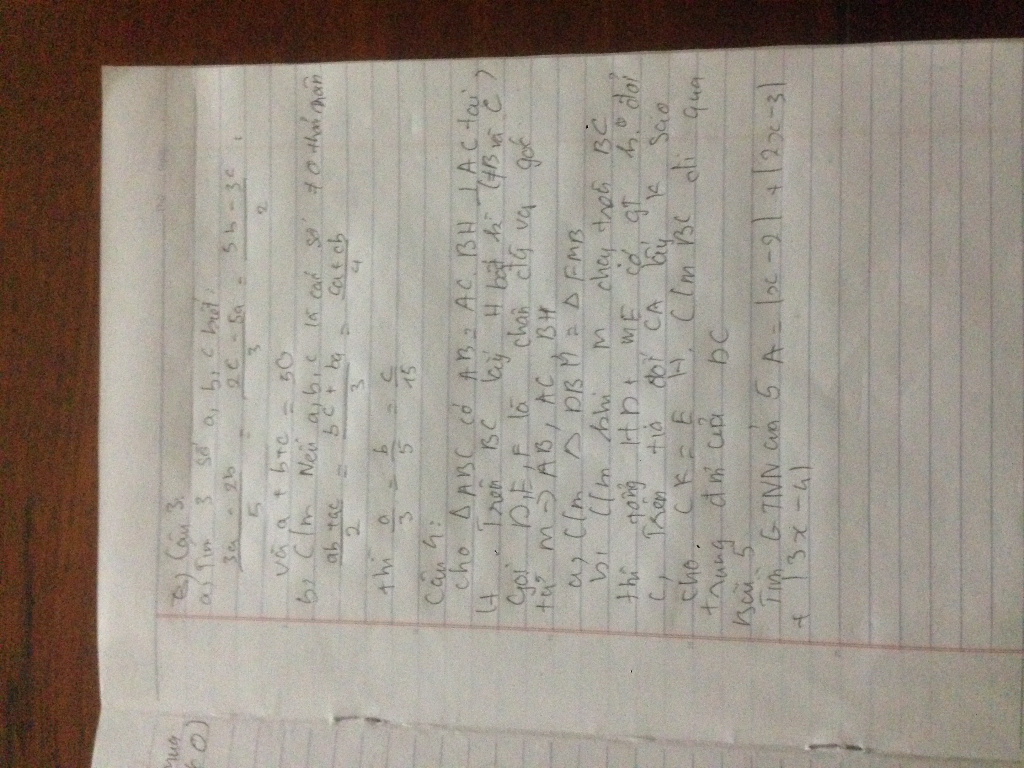 Câu 3.
a, Tìm 3 số a, b, c biết:
3a - 2b / 5 = 2c - 5a / 3 = 5b - 3c / 2
và a + b + c = 50
b, C/m Nếu a, b, c là các số ≠ 0 thỏa mãn
ab + ac / 2 = bc + ba / 3 = ca + cb / 4
thì a / 3 = b / 5 = c / 15
Câu 4:
Cho ΔABC có AB = AC. BH ⊥ AC tại
H. Trên BC lấy M bất kì (≠ B và C)
Gọi D, E, F là chân đg vg góc
từ M → AB, AC, BH
a, C/m Δ DBM = Δ FMB
b, C/m khi M chạy trên BC
thì tổng MD + ME có GT ko đổi
c, Trên tia đối CA lấy K sao
cho CK = EH. C/m BC đi qua
trung điểm của DK
Bài 5
Tìm GTNN của A = |x - 2| + |2x - 3|
+ |3x - 4|
qua
≠ 0)